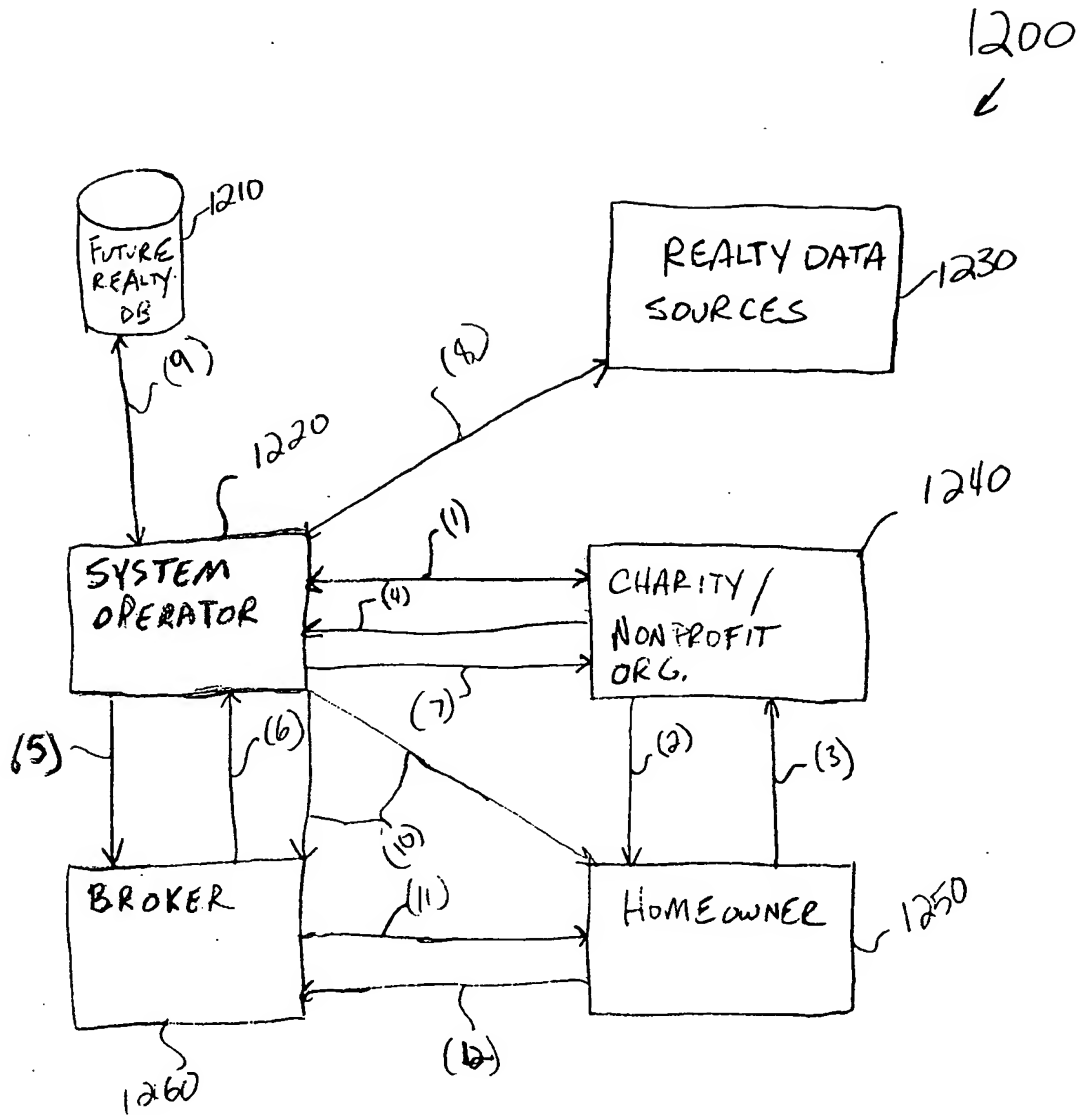 1200
1210
FUTURE
REALTY
DB
REALTY DATA
SOURCES
1230
(9)
(8)
1220
1240
SYSTEM
OPERATOR
(1)
(4)
(7)
CHARITY/
NONPROFIT
ORG.
(5)
(6)
(10)
(2)
(3)
BROKER
(11)
HOMEOWNER
1250
(12)
1260